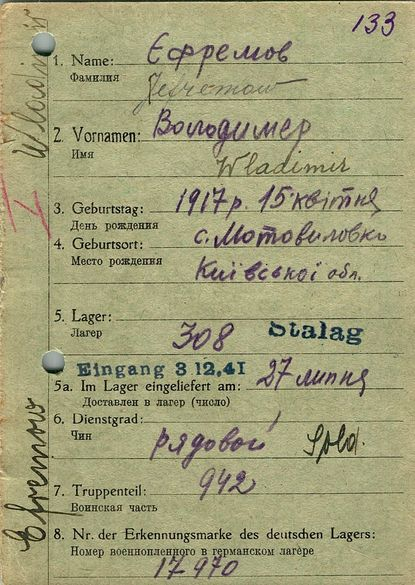 133
1. Name: Єфремов
Фамилия Jefremow
2. Vornamen: Володимер
Имя Wladimir
3. Geburtstag: 1917 р. 15 квітня
День рождения
4. Geburtsort: с. Мотовиловка
Место рождения Київської обл.
5. Lager: 308 Stalag
Лагер
Eingang 3 12.41
5a. Im Lager eingeliefert am: 27 липня
Доставлен в лагер (число)
6. Dienstgrad: рядовой Sold.
Чин
7. Truppenteil: 942
Воинская часть
8. Nr. der Erkennungsmarke des deutschen Lagers:
Номер военнопленного в германском лагере
17970
Efremow
Wladimir